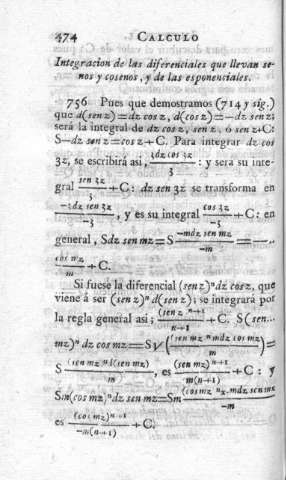 474 CALCULO
Integracion de las diferenciales que llevan se-
nos y cosenos, y de las esponenciales.
756 Pues que demostramos (714 y sig.)
que d(sen z)=dz cos z, d(cos z)=—dz sen z;
será la integral de dz cos z, sen z, ó sen z+C:
S—dz sen z=cos z+C. Para integrar dz cos
3z, se escribirá asi, 3dz cos 3z/3 : y será su inte-
gral sen 3z/3 +C: dz sen 3z se transforma en
—3dz sen 3z/—3, y es su integral cos 3z/—3 +C: en
general, Sdz sen mz=S —mdz sen mz/—m =—..
cos mz/m +C.
Si fuese la diferencial (sen z)ⁿdz cos z, que
viene á ser (sen z)ⁿ d(sen z); se integrará por
la regla general asi; (sen z)ⁿ⁺¹/n+1 +C. S(sen...
mz)ⁿ dz cos mz=S((sen mz)ⁿmdz cos mz/m)=
S (sen mz)ⁿd(sen mz)/m, es (sen mz)ⁿ⁺¹/m(n+1) +C: y
Sm(cos mz)ⁿdz sen mz=Sm (cos mz)ⁿx.mdz sen mz/—m
es (cos mz)ⁿ⁺¹/—m(n+1) +C.